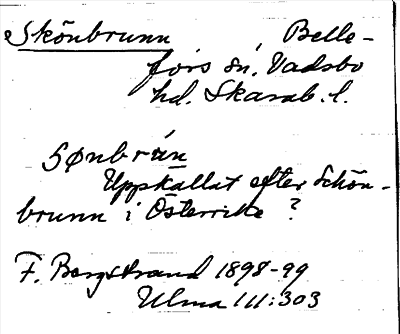 Skönbrunn Belle-
fors sn. Vadsbo
hd. Skarab. l.
Sønbrän
Uppkallat efter Schön-
brunn i Österrike?
F. Bergstrand 1898-99
Ulma 111:303